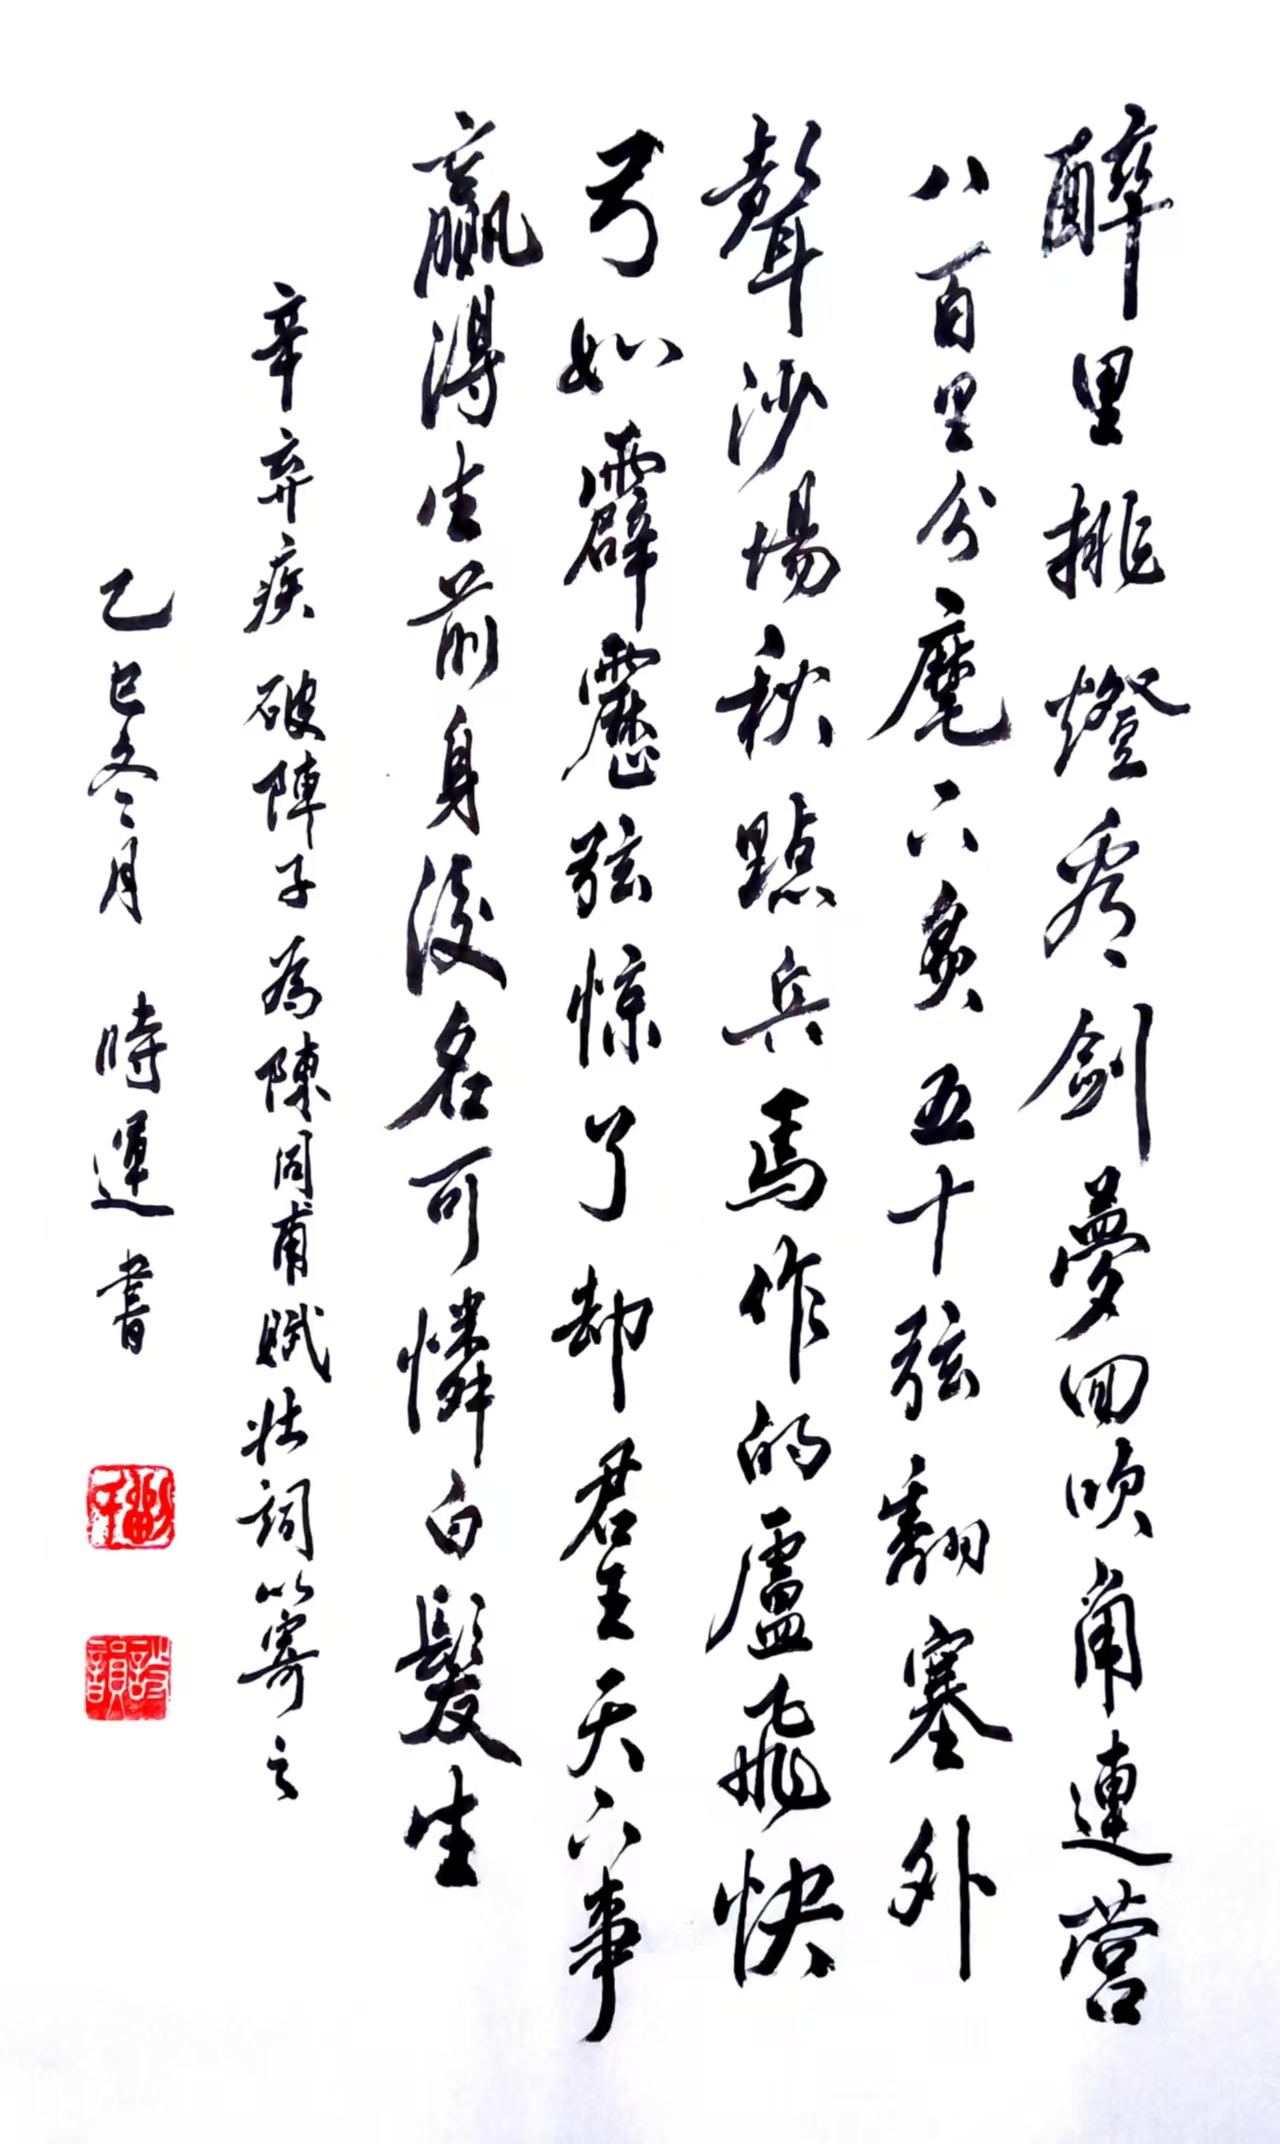 醉里挑燈看劍夢回吹角連营
八百里分麾下炙五十弦翻塞外
聲沙場秋點兵馬作的盧飛快
弓如霹靂弦惊了却君王天下事
赢得生前身後名可憐白髮生
辛弃疾 破陣子 為陳同甫賦壯詞以寄之
乙巳冬月 時運書